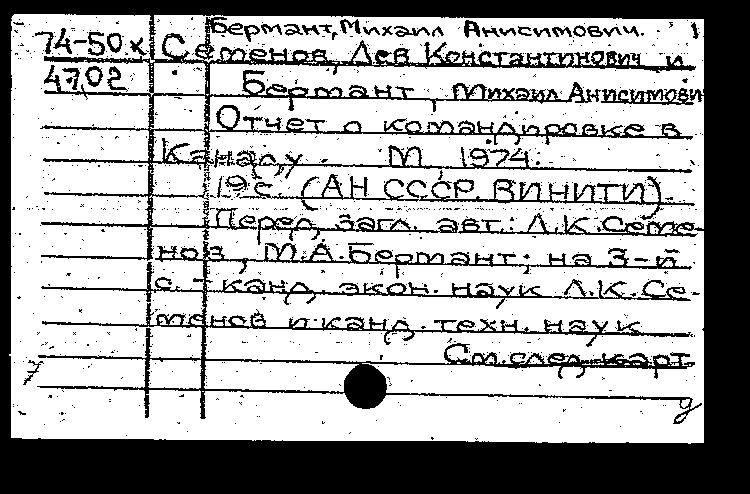 Бермант, Михаил Анисимович. 1
74-50к Семенов, Лев Константинович и
4702 Бермант, Михаил Анисимович
Отчет о командировке в
Канаду. М., 1974.
19 с. (АН СССР. ВИНИТИ).
Перед загл. авт.: Л.К.Семе-
нов, М.А.Бермант; на 3-й
с. - канд. экон. наук Л.К.Се-
менов и канд. техн. наук
См. след. карт
7
д